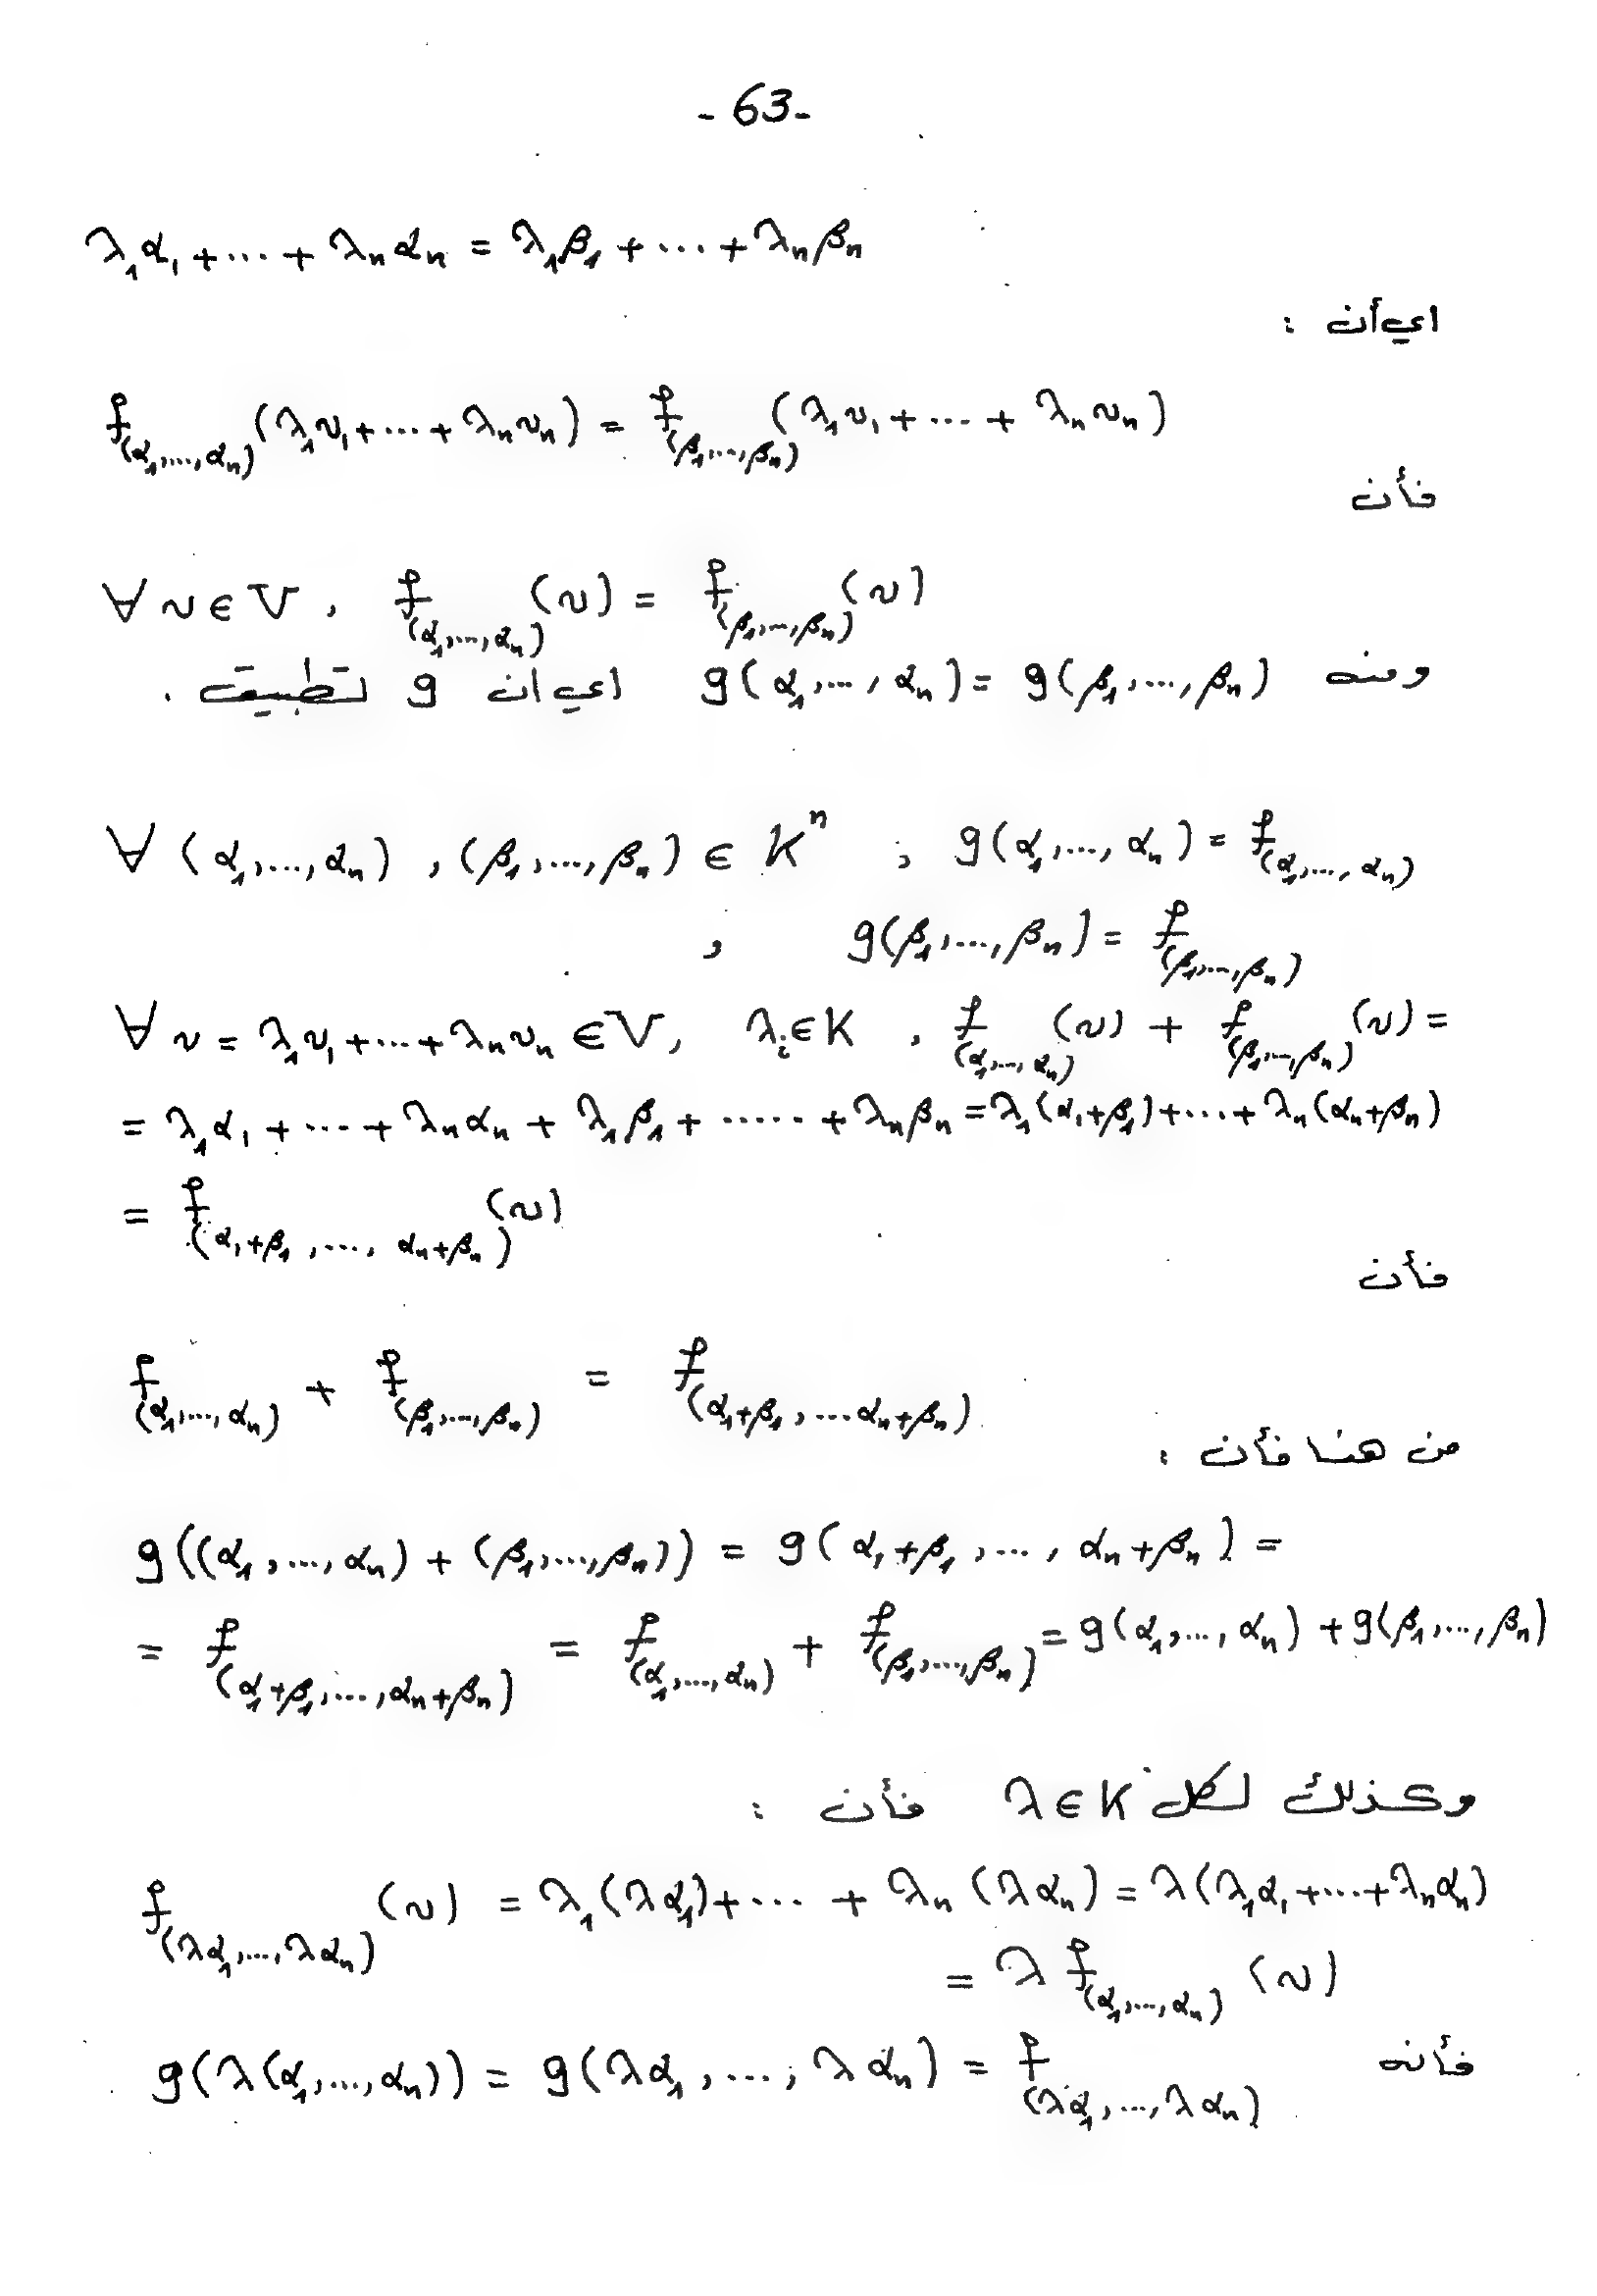 - 63 -
λ₁α₁ + ... + λₙαₙ = λ₁β₁ + ... + λₙβₙ
اي أن :
f_(α₁,...,αₙ)(λ₁v₁ + ... + λₙvₙ) = f_(β₁,...,βₙ)(λ₁v₁ + ... + λₙvₙ)
فأن
∀ v ∈ V , f_(α₁,...,αₙ)(v) = f_(β₁,...,βₙ)(v)
ومنه g(α₁,...,αₙ) = g(β₁,...,βₙ) اي ان g لتطبيق .
∀ (α₁,...,αₙ) , (β₁,...,βₙ) ∈ Kⁿ , g(α₁,...,αₙ) = f_(α₁,...,αₙ)
, g(β₁,...,βₙ) = f_(β₁,...,βₙ)
∀ v = λ₁v₁ + ... + λₙvₙ ∈ V, λᵢ ∈ K , f_(α₁,...,αₙ)(v) + f_(β₁,...,βₙ)(v) =
= λ₁α₁ + ... + λₙαₙ + λ₁β₁ + ..... + λₙβₙ = λ₁(α₁+β₁) + ... + λₙ(αₙ+βₙ)
= f_(α₁+β₁ ,..., αₙ+βₙ)(v)
فأن
f_(α₁,...,αₙ) + f_(β₁,...,βₙ) = f_(α₁+β₁ ,... αₙ+βₙ)
من هنا فأن :
g((α₁,...,αₙ) + (β₁,...,βₙ)) = g(α₁+β₁ ,..., αₙ+βₙ) =
= f_(α₁+β₁,...,αₙ+βₙ) = f_(α₁,...,αₙ) + f_(β₁,...,βₙ) = g(α₁,...,αₙ) + g(β₁,...,βₙ)
وكذلك لكل λ ∈ K فأن :
f_(λα₁,...,λαₙ)(v) = λ₁(λα₁) + ... + λₙ(λαₙ) = λ(λ₁α₁ + ... + λₙαₙ)
= λ f_(α₁,...,αₙ)(v)
فأنه g(λ(α₁,...,αₙ)) = g(λα₁,...,λαₙ) = f_(λα₁,...,λαₙ)